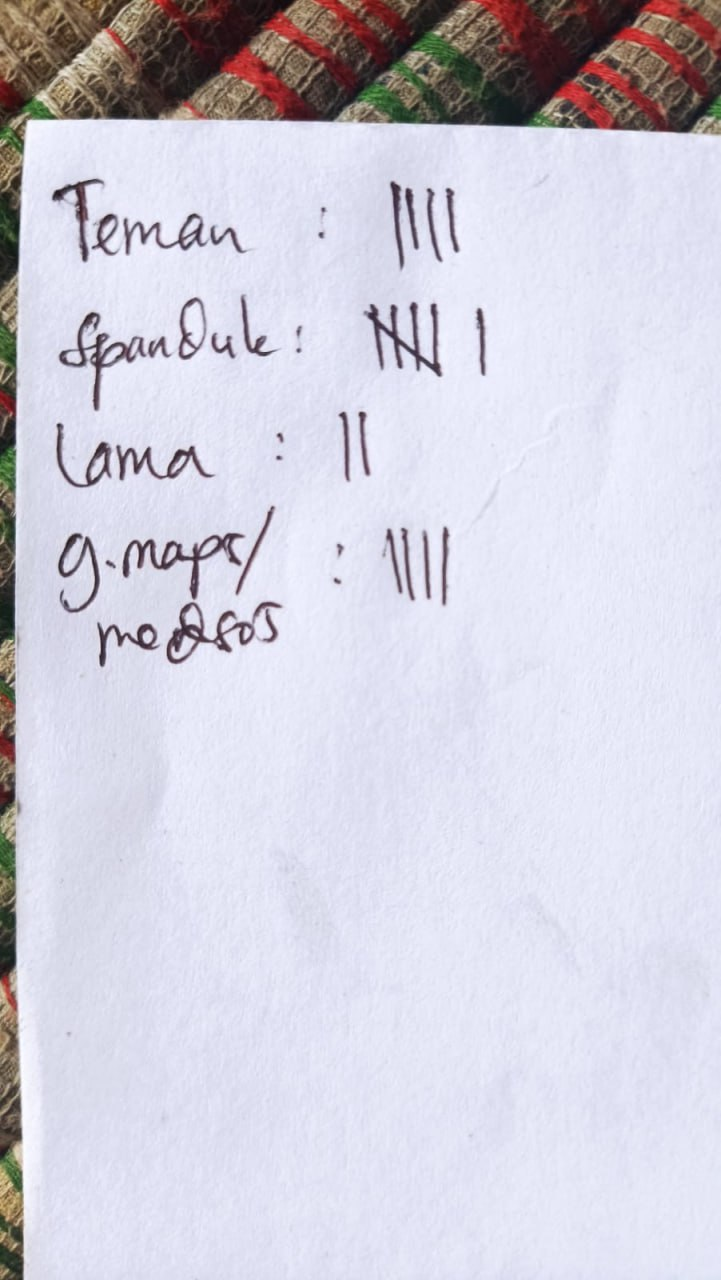 Teman : ||||
Spanduk : 卌 |
Lama : ||
g.maps/ : ||||
medsos